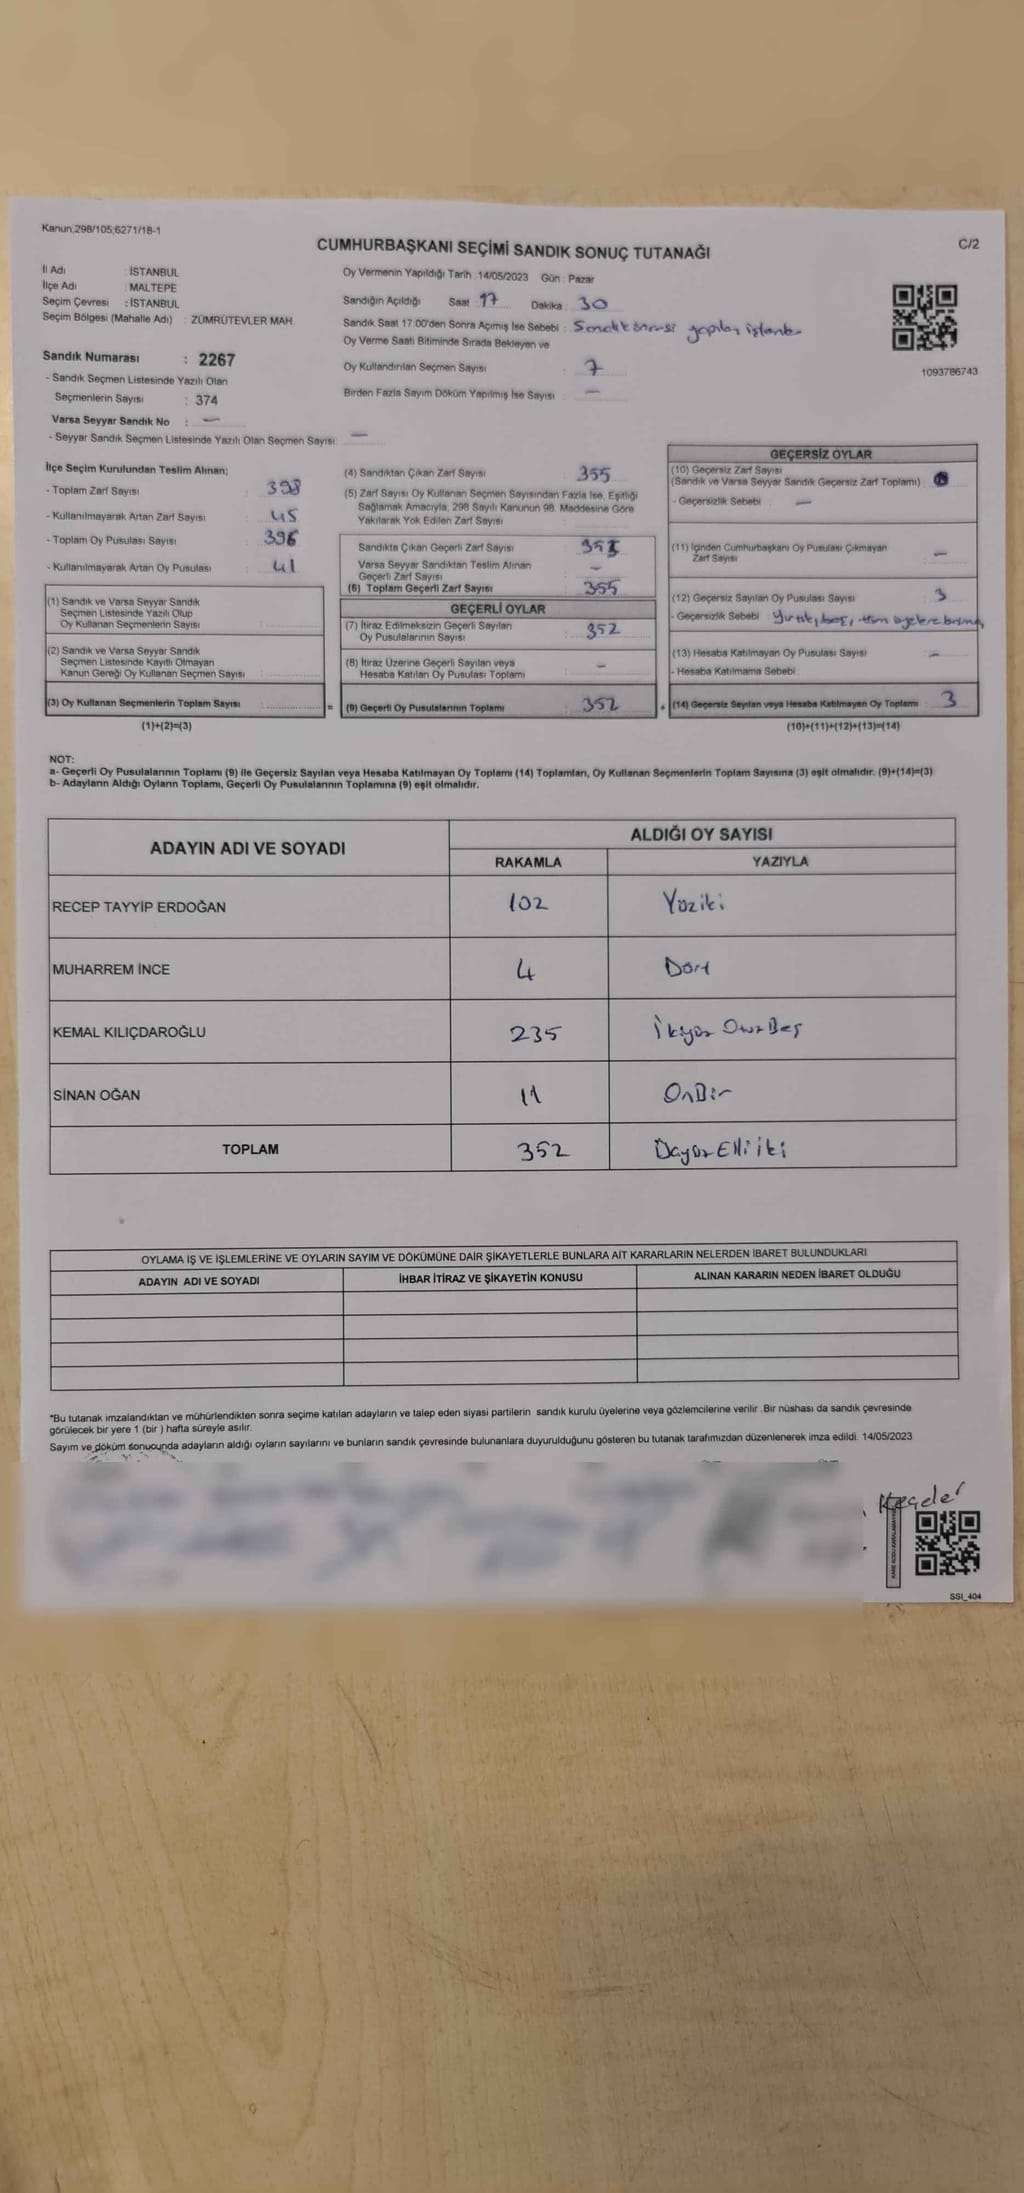 Kanun,298/105;6271/18-1
CUMHURBAŞKANI SEÇİMİ SANDIK SONUÇ TUTANAĞI
C/2
İl Adı : İSTANBUL
İlçe Adı : MALTEPE
Seçim Çevresi : İSTANBUL
Seçim Bölgesi (Mahalle Adı) : ZÜMRÜTEVLER MAH.
Sandık Numarası : 2267
- Sandık Seçmen Listesinde Yazılı Olan
Seçmenlerin Sayısı : 374
Varsa Seyyar Sandık No : —
- Seyyar Sandık Seçmen Listesinde Yazılı Olan Seçmen Sayısı: —
Oy Vermenin Yapıldığı Tarih : 14/05/2023 Gün : Pazar
Sandığın Açıldığı Saat : 17 Dakika : 30
Sandık Saat 17:00'den Sonra Açımış İse Sebebi :
Oy Verme Saati Bitiminde Sırada Bekleyen ve
Oy Kullandırılan Seçmen Sayısı : 7
Birden Fazla Sayım Döküm Yapılmış İse Sayısı : —
1093786743
İlçe Seçim Kurulundan Teslim Alınan;
- Toplam Zarf Sayısı : 398
- Kullanılmayarak Artan Zarf Sayısı : 45
- Toplam Oy Pusulası Sayısı : 396
- Kullanılmayarak Artan Oy Pusulası : 41
(1) Sandık ve Varsa Seyyar Sandık
Seçmen Listesinde Yazılı Olup
Oy Kullanan Seçmenlerin Sayısı :
(2) Sandık ve Varsa Seyyar Sandık
Seçmen Listesinde Kayıtlı Olmayan
Kanun Gereği Oy Kullanan Seçmen Sayısı :
(3) Oy Kullanan Seçmenlerin Toplam Sayısı : =
(1)+(2)=(3)
(4) Sandıktan Çıkan Zarf Sayısı : 355
(5) Zarf Sayısı Oy Kullanan Seçmen Sayısından Fazla İse, Eşitliği
Sağlamak Amacıyla, 298 Sayılı Kanunun 98. Maddesine Göre
Yakılarak Yok Edilen Zarf Sayısı :
Sandıkta Çıkan Geçerli Zarf Sayısı :
Varsa Seyyar Sandıktan Teslim Alınan
Geçerli Zarf Sayısı : —
(6) Toplam Geçerli Zarf Sayısı : 355
GEÇERLİ OYLAR
(7) İtiraz Edilmeksizin Geçerli Sayılan
Oy Pusulalarının Sayısı : 352
(8) İtiraz Üzerine Geçerli Sayılan veya
Hesaba Katılan Oy Pusulası Toplamı : —
(9) Geçerli Oy Pusulalarının Toplamı : 352 +
GEÇERSİZ OYLAR
(10) Geçersiz Zarf Sayısı
(Sandık ve Varsa Seyyar Sandık Geçersiz Zarf Toplamı) :
- Geçersizlik Sebebi : —
(11) İçinden Cumhurbaşkanı Oy Pusulası Çıkmayan
Zarf Sayısı : —
(12) Geçersiz Sayılan Oy Pusulası Sayısı : 3
- Geçersizlik Sebebi : Yırtık, boş,
(13) Hesaba Katılmayan Oy Pusulası Sayısı : —
- Hesaba Katılmama Sebebi :
(14) Geçersiz Sayılan veya Hesaba Katılmayan Oy Toplamı : 3
(10)+(11)+(12)+(13)=(14)
NOT:
a- Geçerli Oy Pusulalarının Toplamı (9) ile Geçersiz Sayılan veya Hesaba Katılmayan Oy Toplamı (14) Toplamları, Oy Kullanan Seçmenlerin Toplam Sayısına (3) eşit olmalıdır. (9)+(14)=(3)
b- Adayların Aldığı Oyların Toplamı, Geçerli Oy Pusulalarının Toplamına (9) eşit olmalıdır.
ADAYIN ADI VE SOYADI ALDIĞI OY SAYISI
RAKAMLA YAZIYLA
RECEP TAYYİP ERDOĞAN 102 Yüziki
MUHARREM İNCE 4 Dört
KEMAL KILIÇDAROĞLU 235 İkiyüz OtuzBeş
SİNAN OĞAN 11 OnBir
TOPLAM 352 ÜçyüzElliiki
OYLAMA İŞ VE İŞLEMLERİNE VE OYLARIN SAYIM VE DÖKÜMÜNE DAİR ŞİKAYETLERLE BUNLARA AİT KARARLARIN NELERDEN İBARET BULUNDUKLARI
ADAYIN ADI VE SOYADI İHBAR İTİRAZ VE ŞİKAYETİN KONUSU ALINAN KARARIN NEDEN İBARET OLDUĞU
*Bu tutanak imzalandıktan ve mühürlendikten sonra seçime katılan adayların ve talep eden siyasi partilerin sandık kurulu üyelerine veya gözlemcilerine verilir .Bir nüshası da sandık çevresinde
görülecek bir yere 1 (bir ) hafta süreyle asılır.
Sayım ve döküm sonucunda adayların aldığı oyların sayılarını ve bunların sandık çevresinde bulunanlara duyurulduğunu gösteren bu tutanak tarafımızdan düzenlenerek imza edildi. 14/05/2023
SSI_404